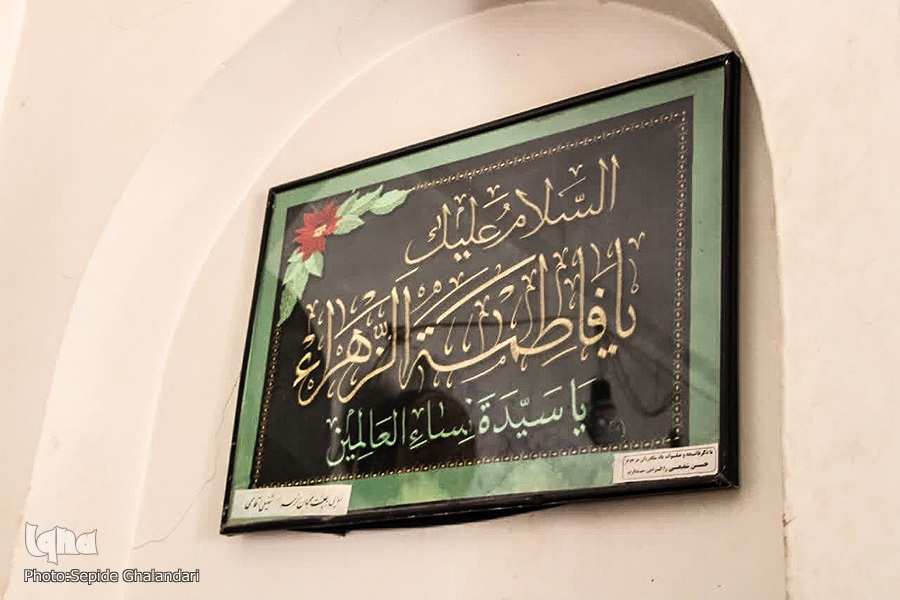 السَّلامُ عَلَيْكِ
يا فاطِمَةَ الزَّهراءِ
يَا سَيِّدَةَ نِساءِ العَالَمِيْنَ
حسن شفیعی را
iqna
Photo:Sepide Ghalandari